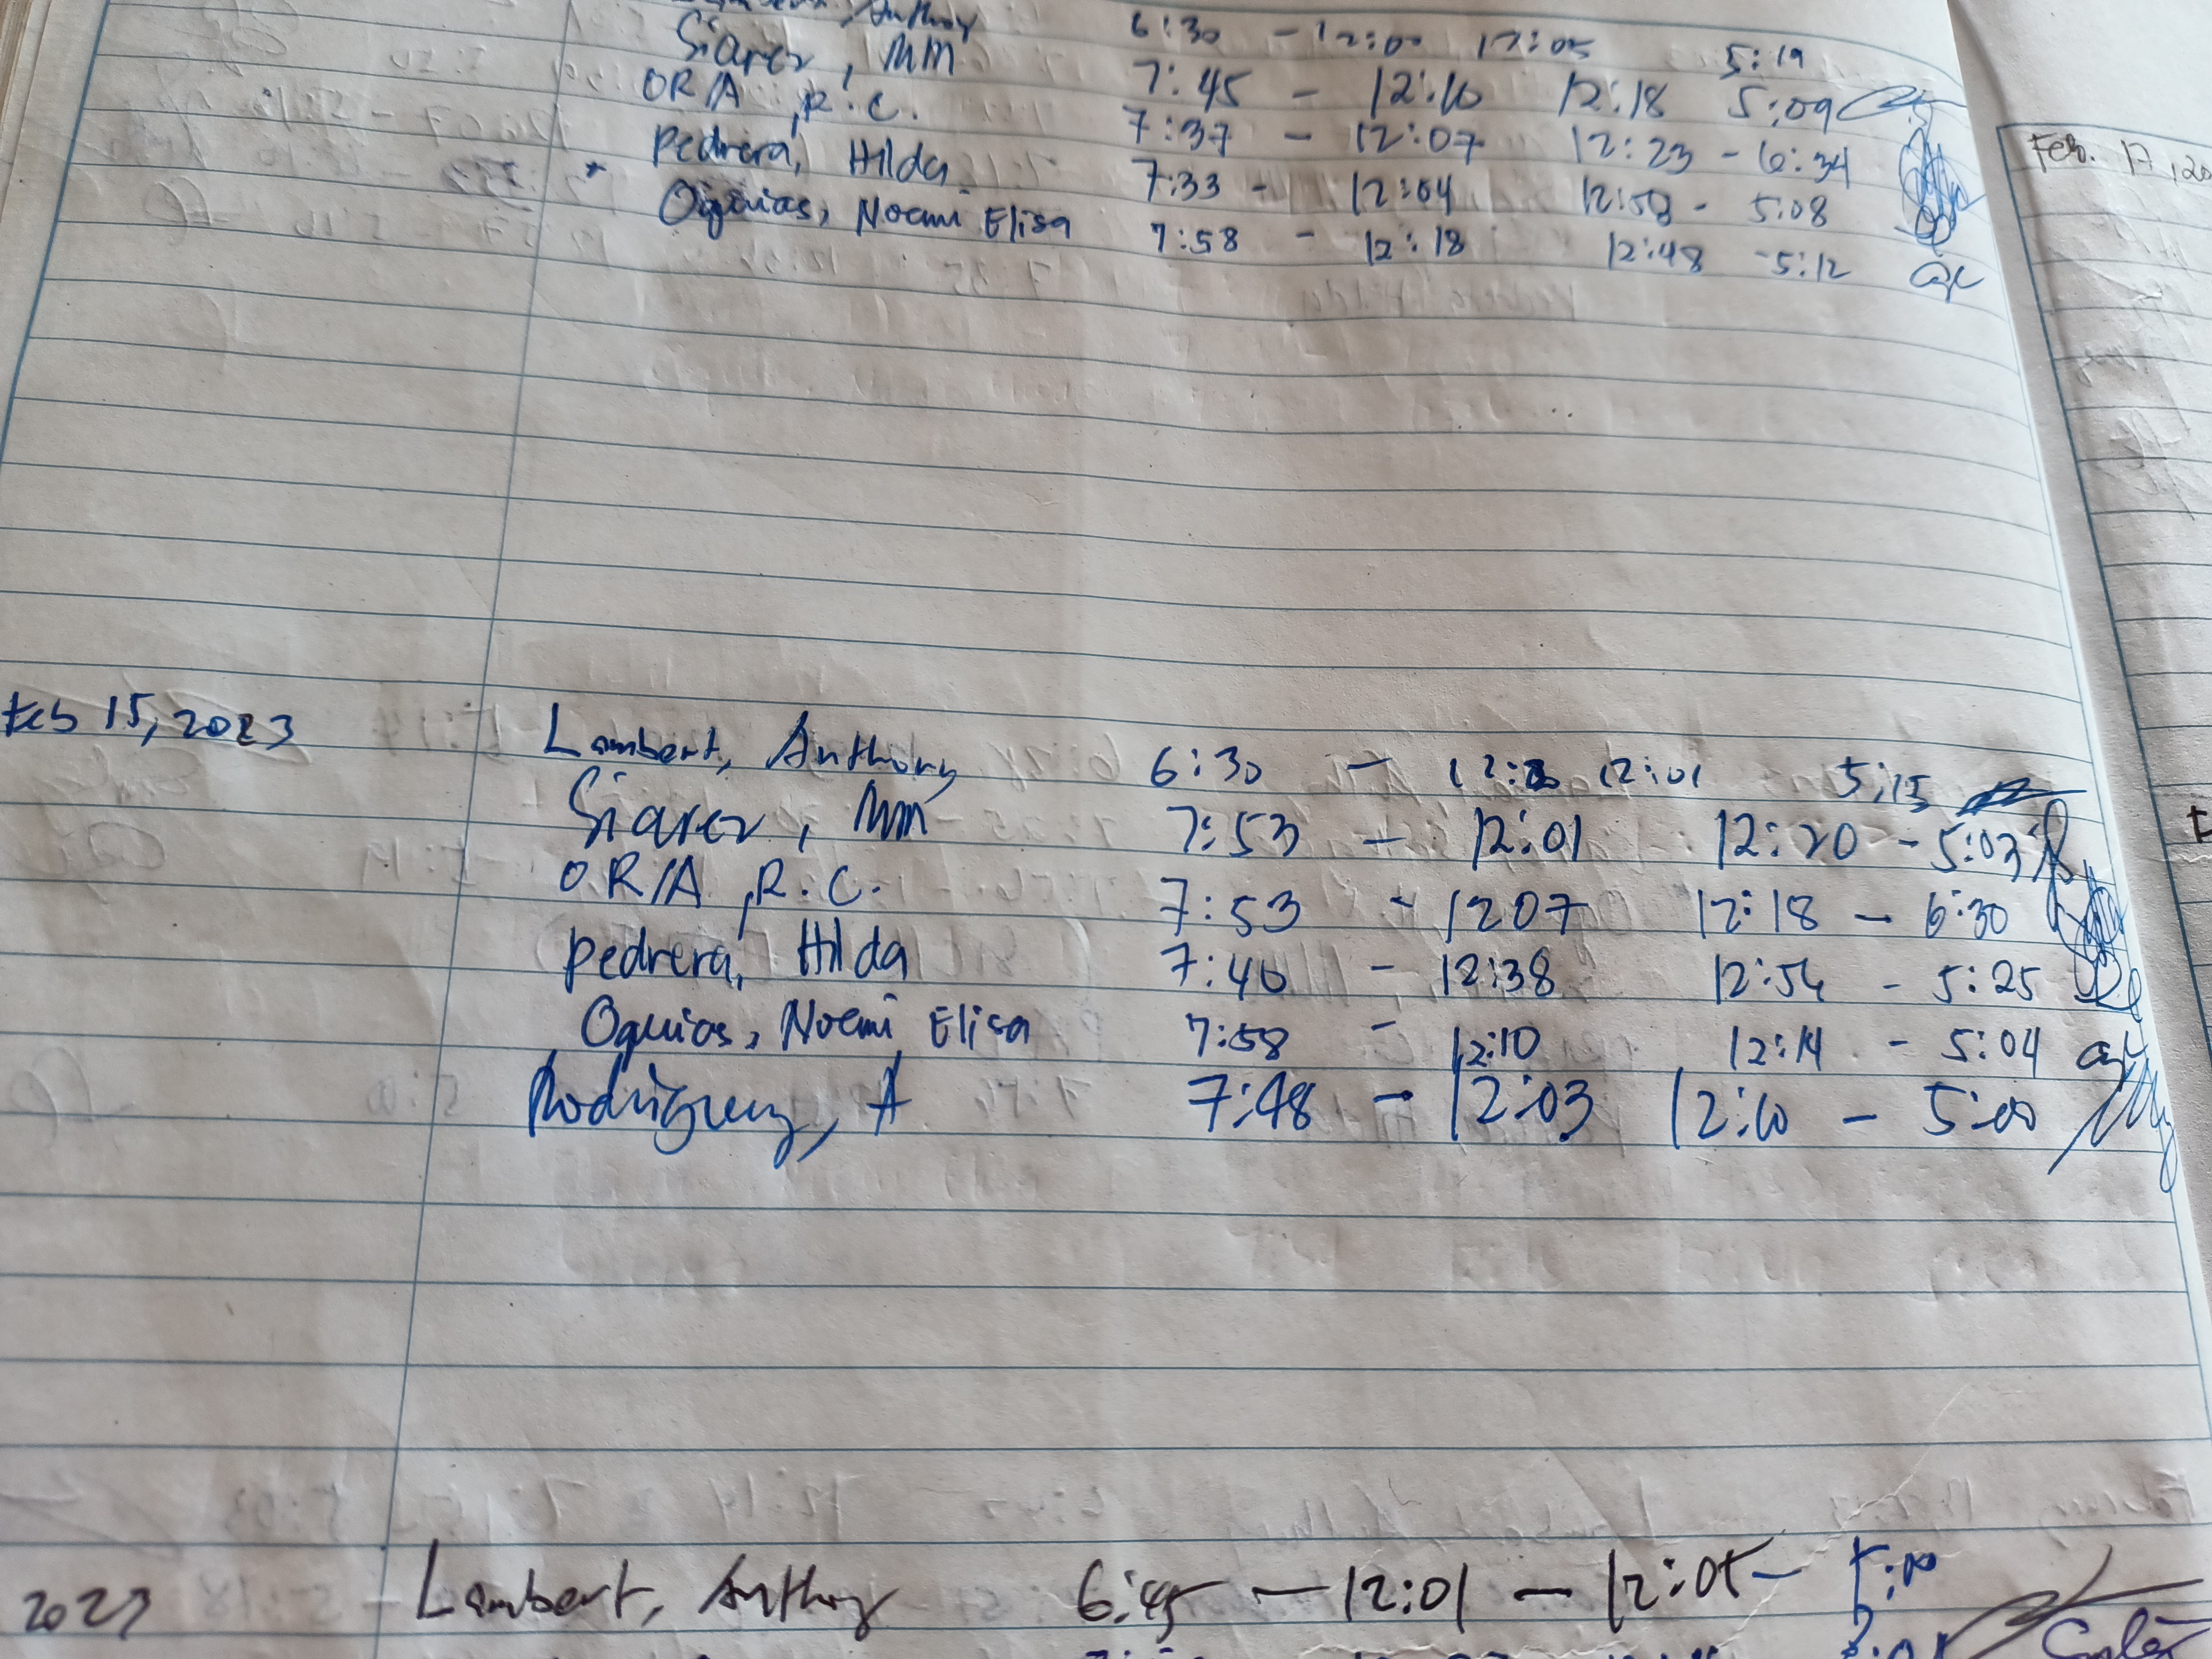 Anthony 6:30 - 12:00 12:05 5:19
Siarez, MM 7:45 - 12:10 12:18 5:09
ORIA, R.C. 7:37 - 12:07 12:23 - 6:34
Pedrera, Hilda 7:33 - 12:04 12:58 - 5:08
Oquias, Noemi Elisa 7:58 - 12:18 12:48 - 5:12
Feb. 17, 20
Feb 15, 2023 Lambert, Anthony 6:30 - 12:01 5:15
Siarez, MM 7:53 - 12:01 12:20 - 5:03
ORIA, R.C. 7:53 - 1207 12:18 - 6:30
Pedrera, Hilda 7:40 - 12:38 12:54 - 5:25
Oquias, Noemi Elisa 7:58 - 12:10 12:14 - 5:04
Rodriguez, A 7:48 - 12:03 12:10 - 5:00
2023 Lambert, Anthony 6:45 - 12:01 - 12:05 - 5:00